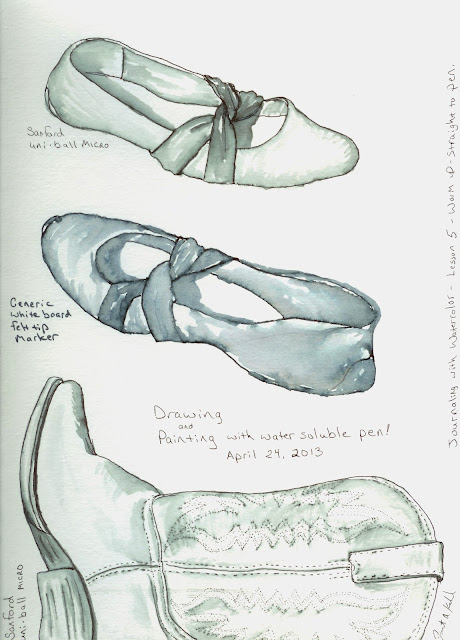 Sanford
uni-ball MICRO
Generic
white board
felt tip
marker
Drawing
and
Painting with water soluble pen!
April 24, 2013
Sanford
uni-ball MICRO
Journaling with Watercolor - Lesson 5 - Warm up - Straight to pen.